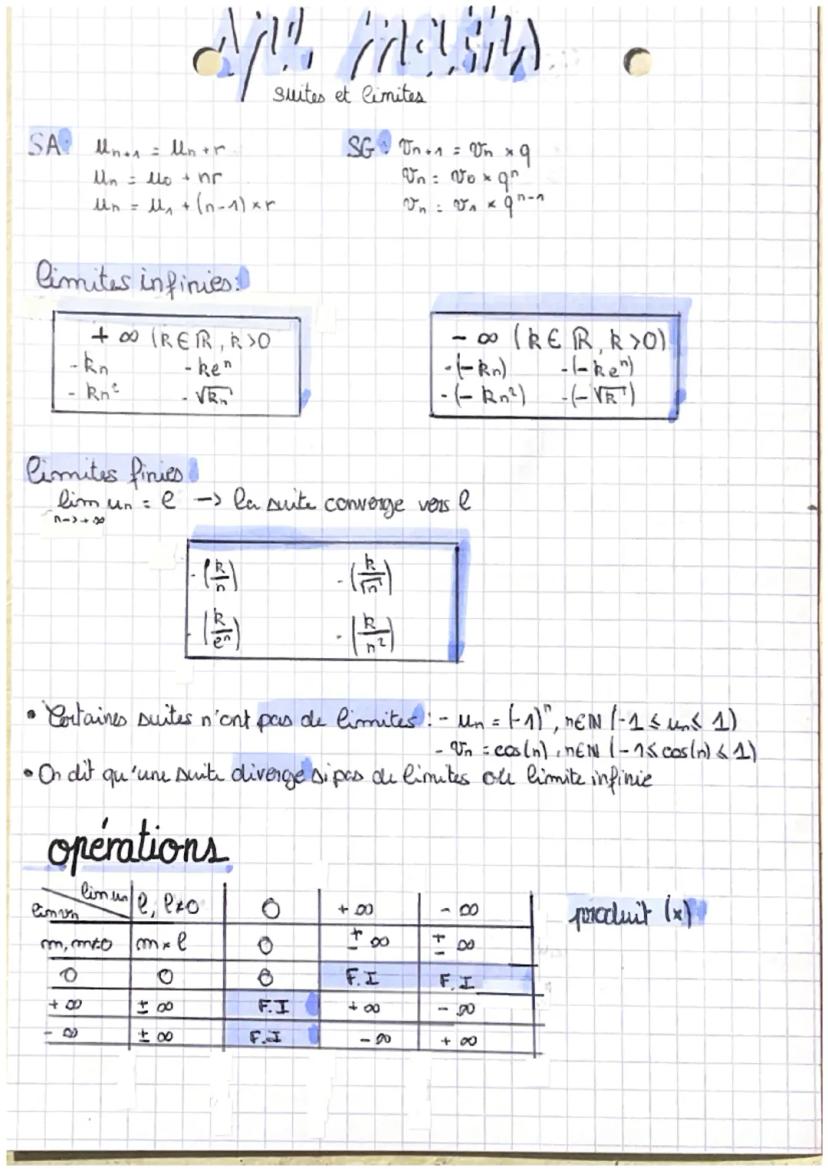 suites et limites
SA: Un+1 = Un + r
Un = U0 + nr
Un = U1 + (n-1) × r
SG: Vn+1 = Vn × q
Vn = V0 × qⁿ
Vn = V1 × qⁿ⁻¹
limites infinies:
+ ∞ (k ∈ ℝ, k >0
- kn - keⁿ
- kn² - √kn
- ∞ (k ∈ ℝ, k >0)
- (- kn) - (- keⁿ)
- (- kn²) - (- √k)
limites finies
lim un = l -> la suite converge vers l
n->+∞
- (k/n) - (k/√n)
- (k/eⁿ) - (k/n²)
• Certaines suites n'ont pas de limites : - un = (-1)ⁿ, n∈ℕ (-1 ≤ un ≤ 1)
- Vn = cos(n), n∈ℕ (-1 ≤ cos(n) ≤ 1)
• On dit qu'une suite diverge si pas de limites ou limite infinie
opérations
produit (×)
lim un l, l≠0 0 + ∞ - ∞
lim vn
m, m≠0 m × l 0 ± ∞ ± ∞
0 0 0 F.I F.I
+ ∞ ± ∞ F.I + ∞ - ∞
- ∞ ± ∞ F.I - ∞ + ∞